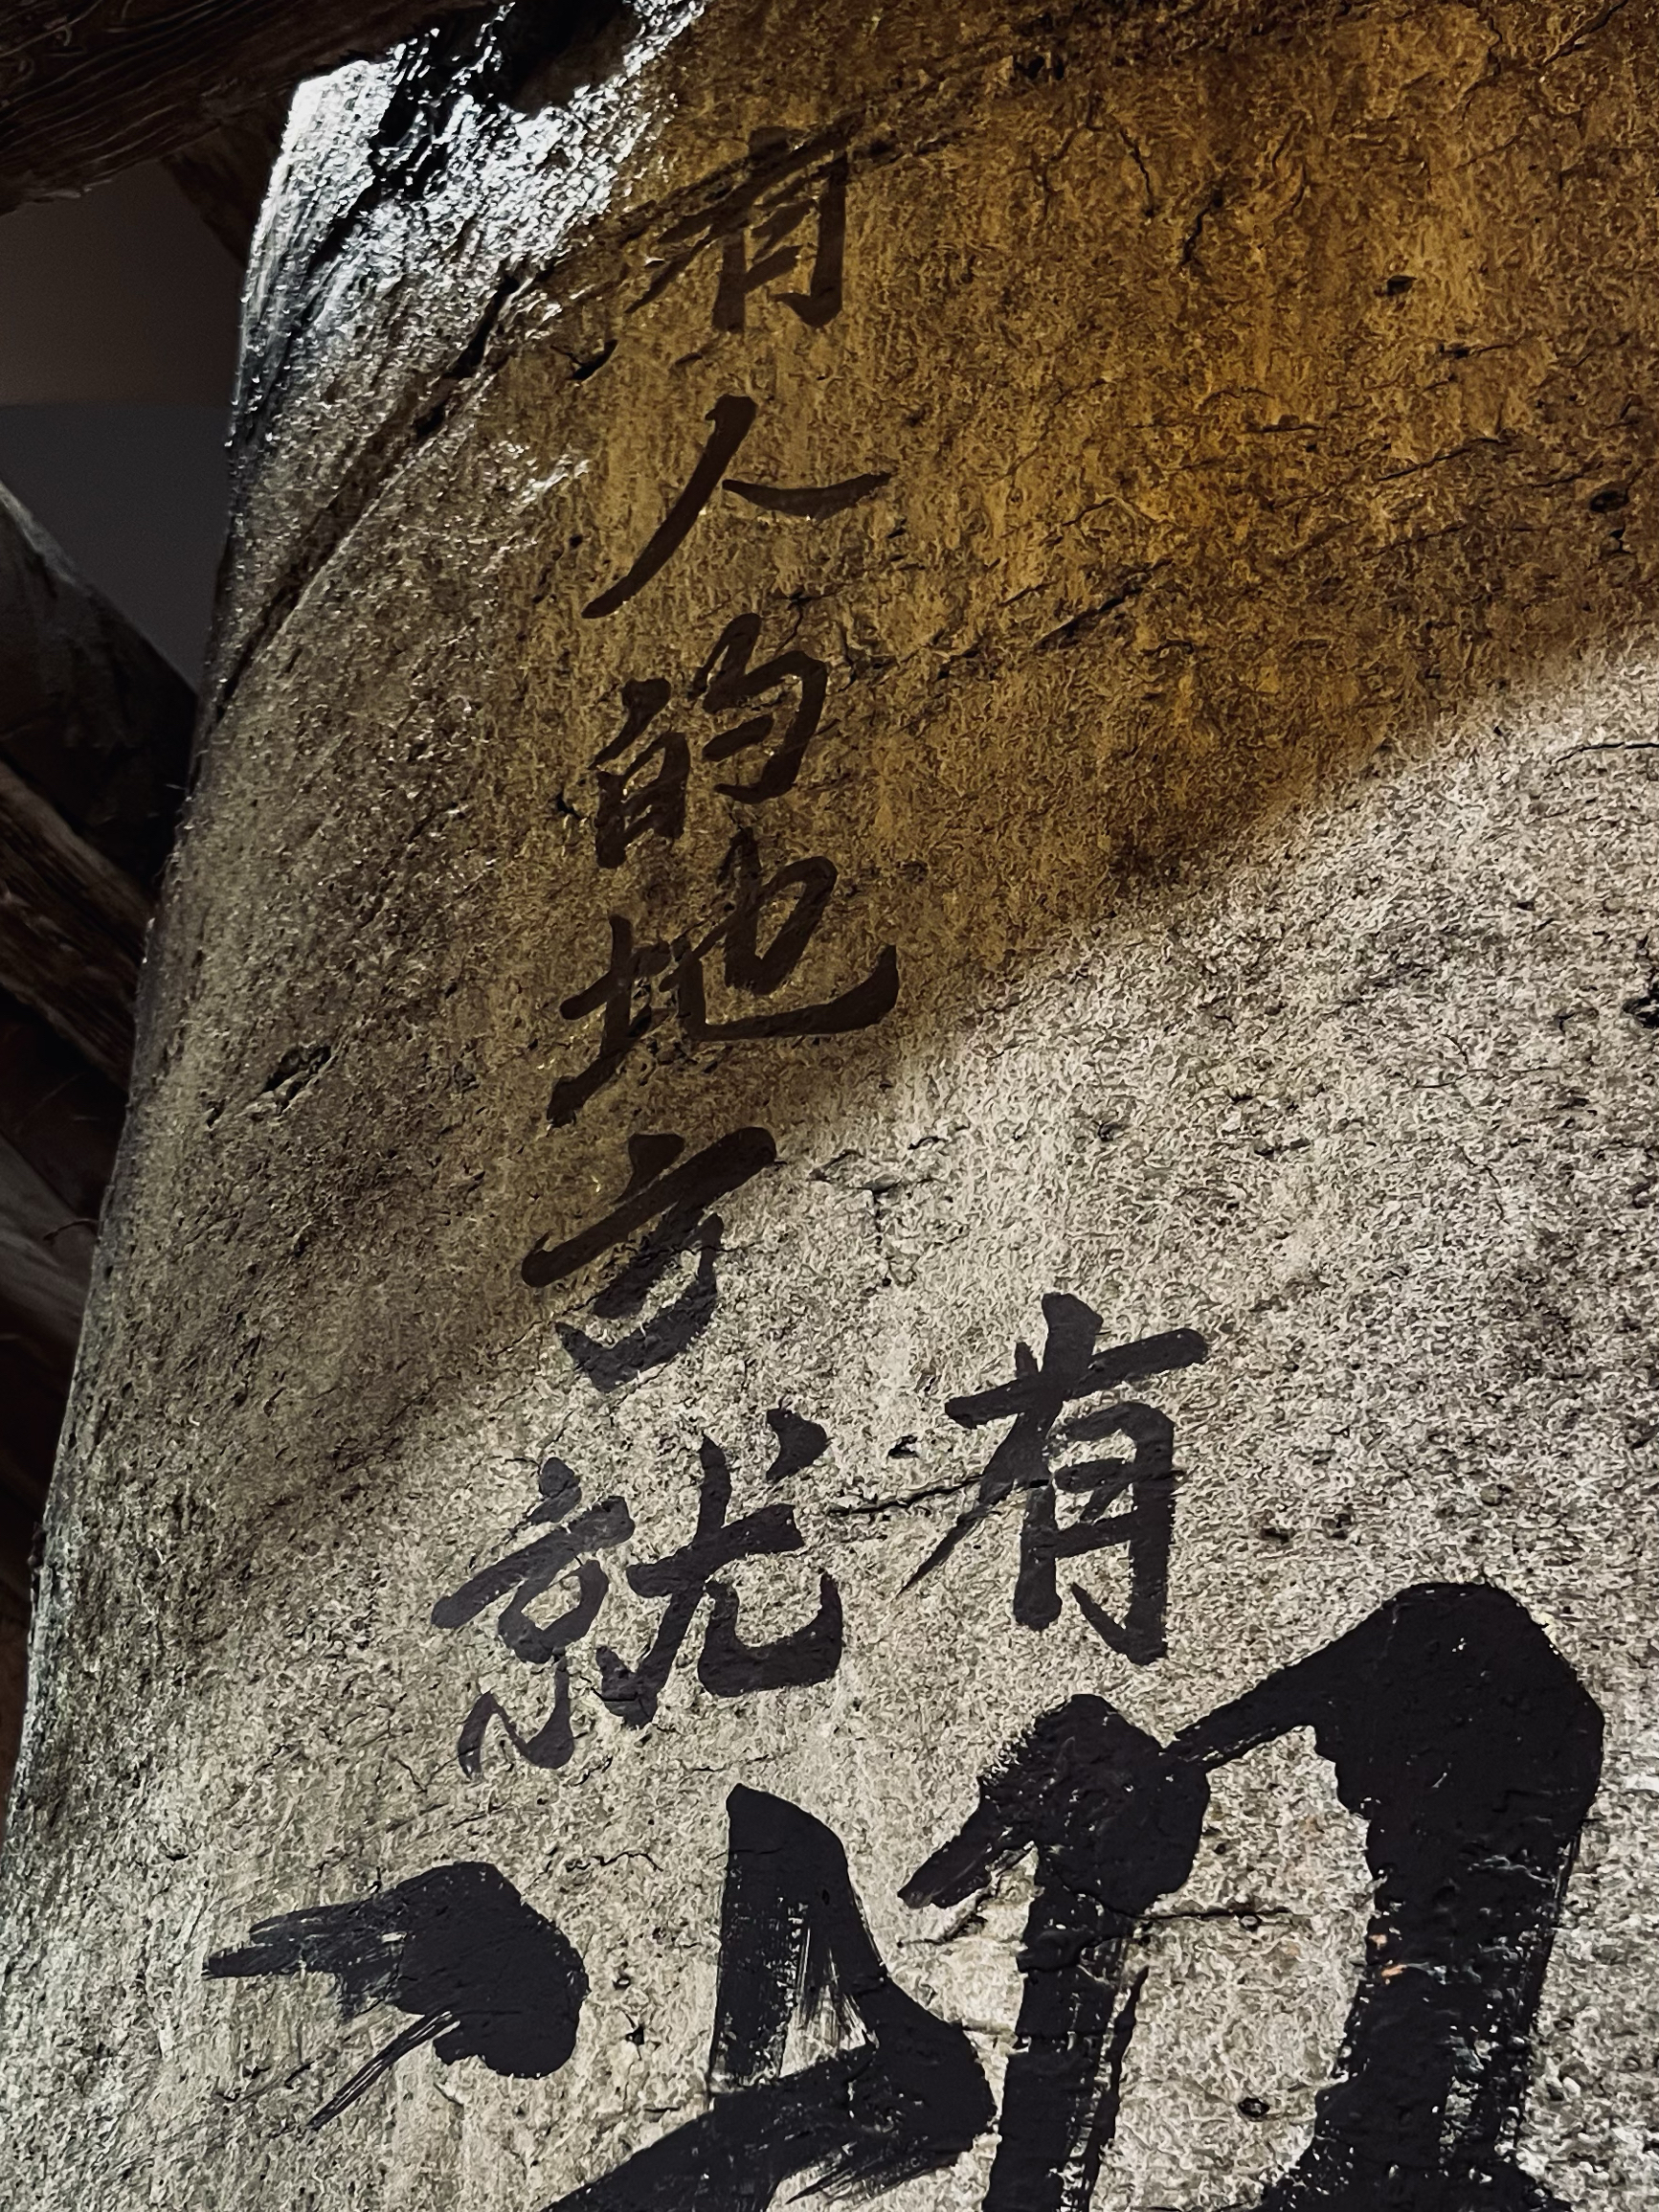 有人的地方就
有